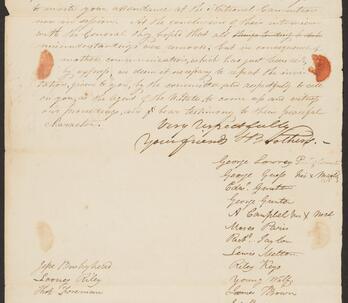 to invite your attendance at the National Convention
now in session. At the conclusion of their interview
with the General they hoped that all misunder
misunderstandings were removed, but in consequence of
another communication, which has just been
by express, we deem it necessary to repeat the invi-
tation, given to you, by the committee, yesterday to call
on you, as the Agent of the U. States, to come up and witness
our proceedings, and to bear testimony to their peaceful
character.
Very respectfully
Your friends & Brothers.
George Lowrey
George Guess his x mark
Edwd. Gunter
George Gunter
A Campbel his x mark
Moses Paris
Richd. Taylor
Lewis Melton
Riley Keys
Young Wolf
James Brown
Jesse Bushyhead
Looney Riley
Thos Foreman